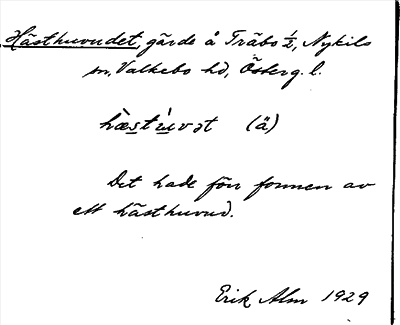 Hästhuvudet, gärde å Träbo ½, Nykils
sn, Valkebo hd, Österg. l.
hæ̀stʉ́vət (ä)
Det hade förr formen av
ett hästhuvud.
Erik Alm 1929